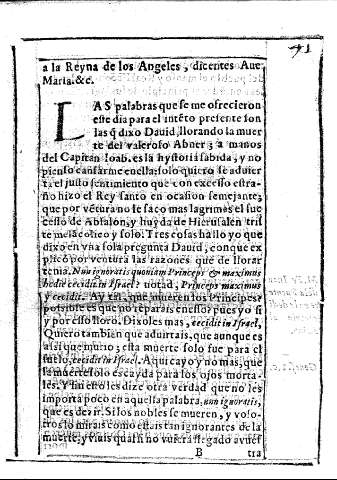 a la Reyna de los Angeles, dicentes Aue
Maria.&c.
91
LAS palabras que se me ofrecieron
este dia para el intẽto presente son
las q̃ dixo Dauid, llorando la muer
te del valeroso Abner; a manos
del Capitan Ioab. es la hystoria sabida, y no
pienso cansarme en ella; solo quiero se aduier
ta el justo sentimiento que con excesso estra-
ño hizo el Rey santo en ocasion semejante;
que por vẽtura no le saco mas lagrimas el su
cesso de Absalõ, y huyda de Hierusalen tris
te melãcolico y solo. Tres cosas hallo yo que
dixo en vna sola pregunta Dauid, con que ex
plicó por ventura las razones que de llorar
tenia. Num ignoratis quoniam Princeps & maximus
hodie cecidit in Israel? notad, Princeps maximus
y cecidit. Ay tal, que mueren los Principes?
possible es que no reparais en esso? pues yo si
y por esso lloro. Dixoles mas, cecidit in Israel,
Quiero tambien que aduirtais, que aunque es
assi que murio; esta muerte solo fue para el
suelo, cecidit in Israel. Aqui cayo y no mas, que
la muerte solo es cayda para los ojos morta-
les. Y sin esto les dize otra verdad que no les
importa poco en aquella palabra, num ignoratis,
que es dezir. Si los nobles se mueren, y voso-
tros lo mirais como estais tan ignorantes de la
muerte, y viuis qual si no vuiera llegado a vues
B tra